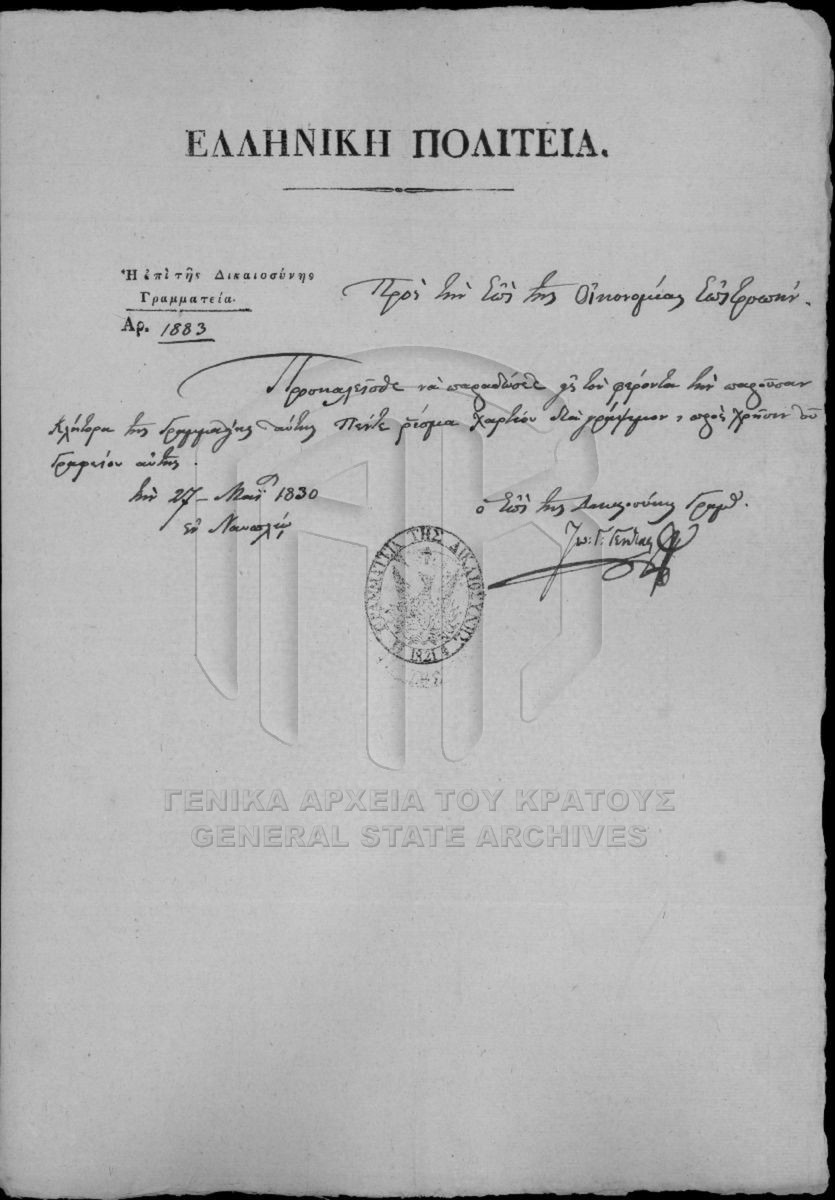 ΕΛΛΗΝΙΚΗ ΠΟΛΙΤΕΙΑ.
Ἡ ἐπὶ τῆς Δικαιοσύνης
Γραμματεία.
Αρ. 1883
Πρὸς τὴν ἐπὶ τῆς Οἰκονομίας Ἐπιτροπήν.
Προσκαλεῖσθε νὰ παραδώσετε εἰς τὸν φέροντα τὴν παροῦσαν
κλήτορα τῆς Γραμματείας αὐτῆς πέντε ῥίσμα χαρτίου διὰ γράψιμον, πρὸς χρῆσιν τοῦ
Γραφείου αὐτῆς.
τὴν 27 Μαΐου 1830
ἐν Ναυπλίῳ
ὁ ἐπὶ τῆς Δικαιοσύνης Γραμμ.
Ἰω: Γ: Γεννατᾶς
Η ΓΡΑΜΜΑΤΕΙΑ ΤΗΣ ΔΙΚΑΙΟΣΥΝΗΣ.
1821
ΓΕΝΙΚΑ ΑΡΧΕΙΑ ΤΟΥ ΚΡΑΤΟΥΣ
GENERAL STATE ARCHIVES